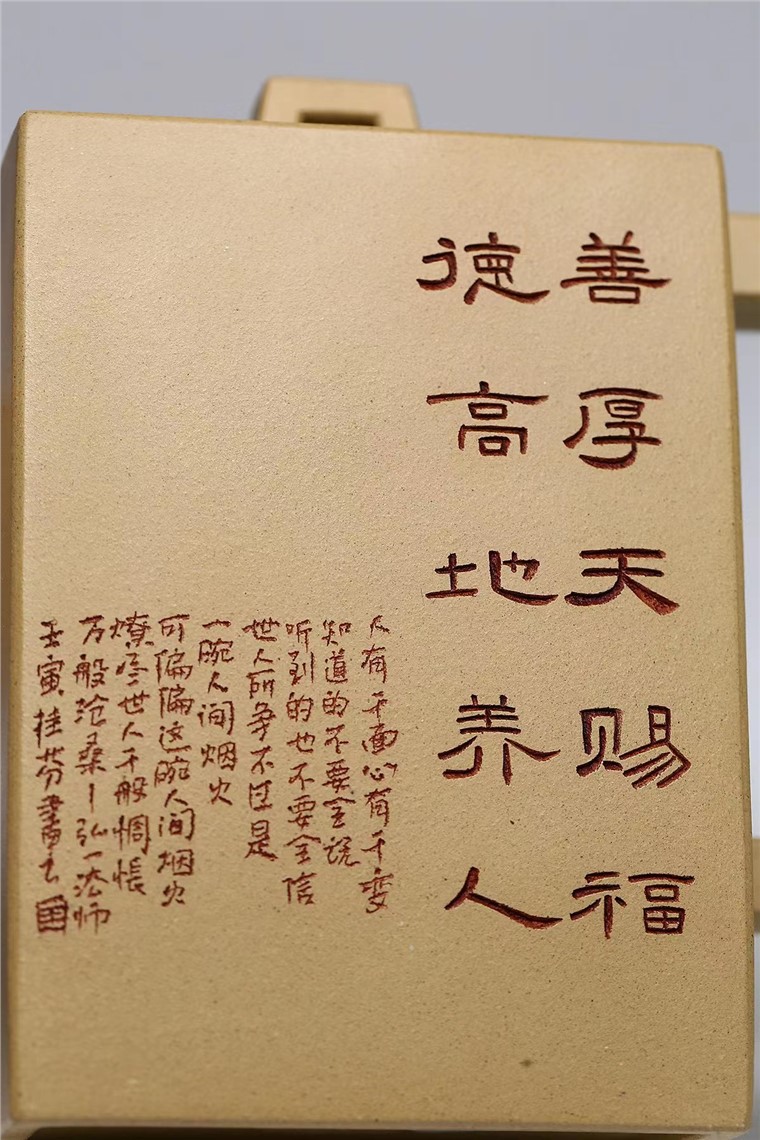 善厚天赐福
德高地养人
人有千面心有千变
知道的不要全说
听到的也不要全信
世人所争不过是
一碗人间烟火
可偏偏这碗人间烟火
燎尽世人千般惆怅
万般沧桑－弘一法师
壬寅桂芬書